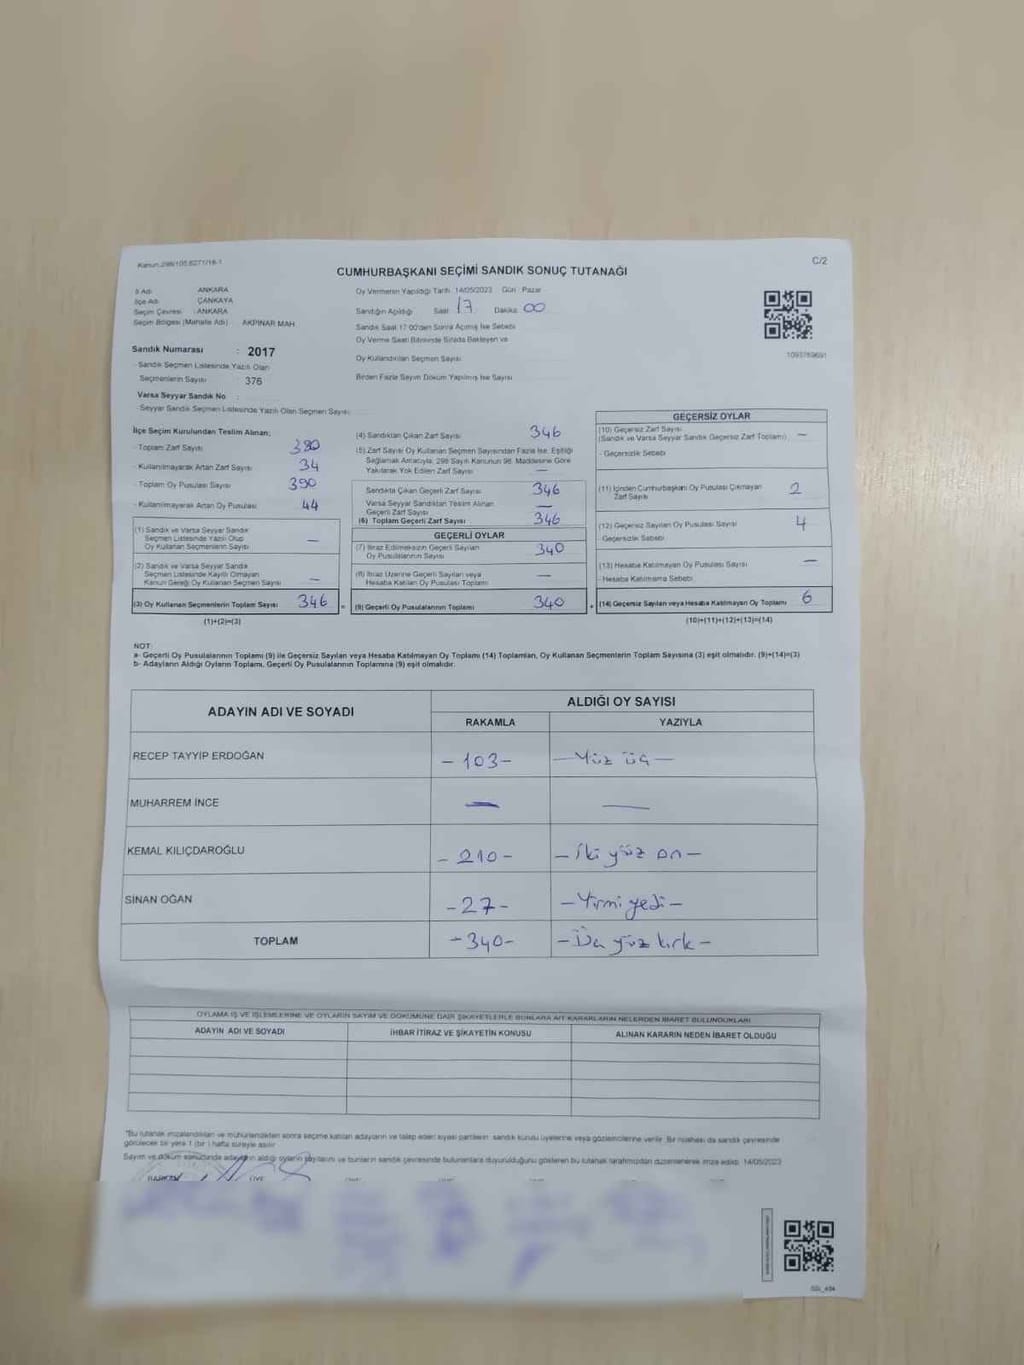 Kanun 298/105,6271/18-1
C/2
CUMHURBAŞKANI SEÇİMİ SANDIK SONUÇ TUTANAĞI
İl Adı : ANKARA
İlçe Adı : ÇANKAYA
Seçim Çevresi : ANKARA
Seçim Bölgesi (Mahalle Adı) : AKPINAR MAH.
Sandık Numarası : 2017
- Sandık Seçmen Listesinde Yazılı Olan
Seçmenlerin Sayısı : 376
Varsa Seyyar Sandık No :
- Seyyar Sandık Seçmen Listesinde Yazılı Olan Seçmen Sayısı
Oy Vermenin Yapıldığı Tarih 14/05/2023 Gün : Pazar
Sandığın Açıldığı Saat 17 Dakika 00
Sandık Saat 17:00'den Sonra Açılmış İse Sebebi
Oy Verme Saati Bitiminde Sırada Bekleyen ve
Oy Kullandırılan Seçmen Sayısı
Birden Fazla Sayım Döküm Yapılmış İse Sayısı
1093789691
İlçe Seçim Kurulundan Teslim Alınan;
- Toplam Zarf Sayısı 380
- Kullanılmayarak Artan Zarf Sayısı 34
- Toplam Oy Pusulası Sayısı 390
- Kullanılmayarak Artan Oy Pusulası 44
(1) Sandık ve Varsa Seyyar Sandık
Seçmen Listesinde Yazılı Olup
Oy Kullanan Seçmenlerin Sayısı —
(2) Sandık ve Varsa Seyyar Sandık
Seçmen Listesinde Kayıtlı Olmayan
Kanun Gereği Oy Kullanan Seçmen Sayısı —
(3) Oy Kullanan Seçmenlerin Toplam Sayısı 346
(1)+(2)=(3)
(4) Sandıktan Çıkan Zarf Sayısı 346
(5) Zarf Sayısı Oy Kullanan Seçmen Sayısından Fazla İse, Eşitliği
Sağlamak Amacıyla, 298 Sayılı Kanunun 98. Maddesine Göre
Yakılarak Yok Edilen Zarf Sayısı —
Sandıkta Çıkan Geçerli Zarf Sayısı 346
Varsa Seyyar Sandıktan Teslim Alınan
Geçerli Zarf Sayısı —
(6) Toplam Geçerli Zarf Sayısı 346
GEÇERLİ OYLAR
(7) İtiraz Edilmeksizin Geçerli Sayılan
Oy Pusulalarının Sayısı 340
(8) İtiraz Üzerine Geçerli Sayılan veya
Hesaba Katılan Oy Pusulası Toplamı —
= (9) Geçerli Oy Pusulalarının Toplamı 340
GEÇERSİZ OYLAR
(10) Geçersiz Zarf Sayısı
(Sandık ve Varsa Seyyar Sandık Geçersiz Zarf Toplamı) —
- Geçersizlik Sebebi
(11) İçinden Cumhurbaşkanı Oy Pusulası Çıkmayan
Zarf Sayısı 2
(12) Geçersiz Sayılan Oy Pusulası Sayısı 4
- Geçersizlik Sebebi
(13) Hesaba Katılmayan Oy Pusulası Sayısı —
- Hesaba Katılmama Sebebi
+ (14) Geçersiz Sayılan veya Hesaba Katılmayan Oy Toplamı 6
(10)+(11)+(12)+(13)=(14)
NOT:
a- Geçerli Oy Pusulalarının Toplamı (9) ile Geçersiz Sayılan veya Hesaba Katılmayan Oy Toplamı (14) Toplamları, Oy Kullanan Seçmenlerin Toplam Sayısına (3) eşit olmalıdır. (9)+(14)=(3)
b- Adayların Aldığı Oyların Toplamı, Geçerli Oy Pusulalarının Toplamına (9) eşit olmalıdır.
ADAYIN ADI VE SOYADI ALDIĞI OY SAYISI
RAKAMLA YAZIYLA
RECEP TAYYİP ERDOĞAN -103- -Yüz üç-
MUHARREM İNCE — —
KEMAL KILIÇDAROĞLU -210- -İki yüz on-
SİNAN OĞAN -27- -Yirmi yedi-
TOPLAM -340- -Üç yüz kırk-
OYLAMA İŞ VE İŞLEMLERİNE VE OYLARIN SAYIM VE DÖKÜMÜNE DAİR ŞİKAYETLERLE BUNLARA AİT KARARLARIN NELERDEN İBARET BULUNDUKLARI
ADAYIN ADI VE SOYADI İHBAR İTİRAZ VE ŞİKAYETİN KONUSU ALINAN KARARIN NEDEN İBARET OLDUĞU
"Bu tutanak imzalandıktan ve mühürlendikten sonra seçime katılan adayların ve talep eden siyasi partilerin sandık kurulu üyelerine veya gözlemcilerine verilir. Bir nüshası da sandık çevresinde
görülecek bir yere 1 (bir) hafta süreyle asılır.
Sayım ve döküm sonucunda adayların aldığı oyların sayılarını ve bunların sandık çevresinde bulunanlara duyurulduğunu gösteren bu tutanak tarafımızdan düzenlenerek imza edildi. 14/05/2023
BAŞKAN ÜYE